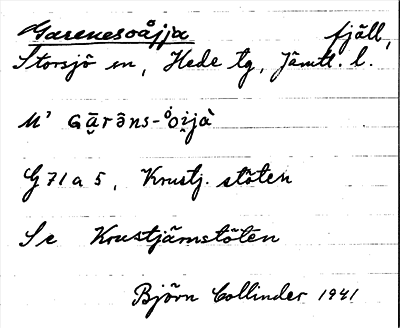 Garenesoåjja fjäll,
Storsjö sn, Hede tg, Jämtl. l.
M' Gāŕǝns-o̊i̯jà
G 71 a 5, Krustj. stöten
Se Krustjärnstöten
Björn Collinder 1941